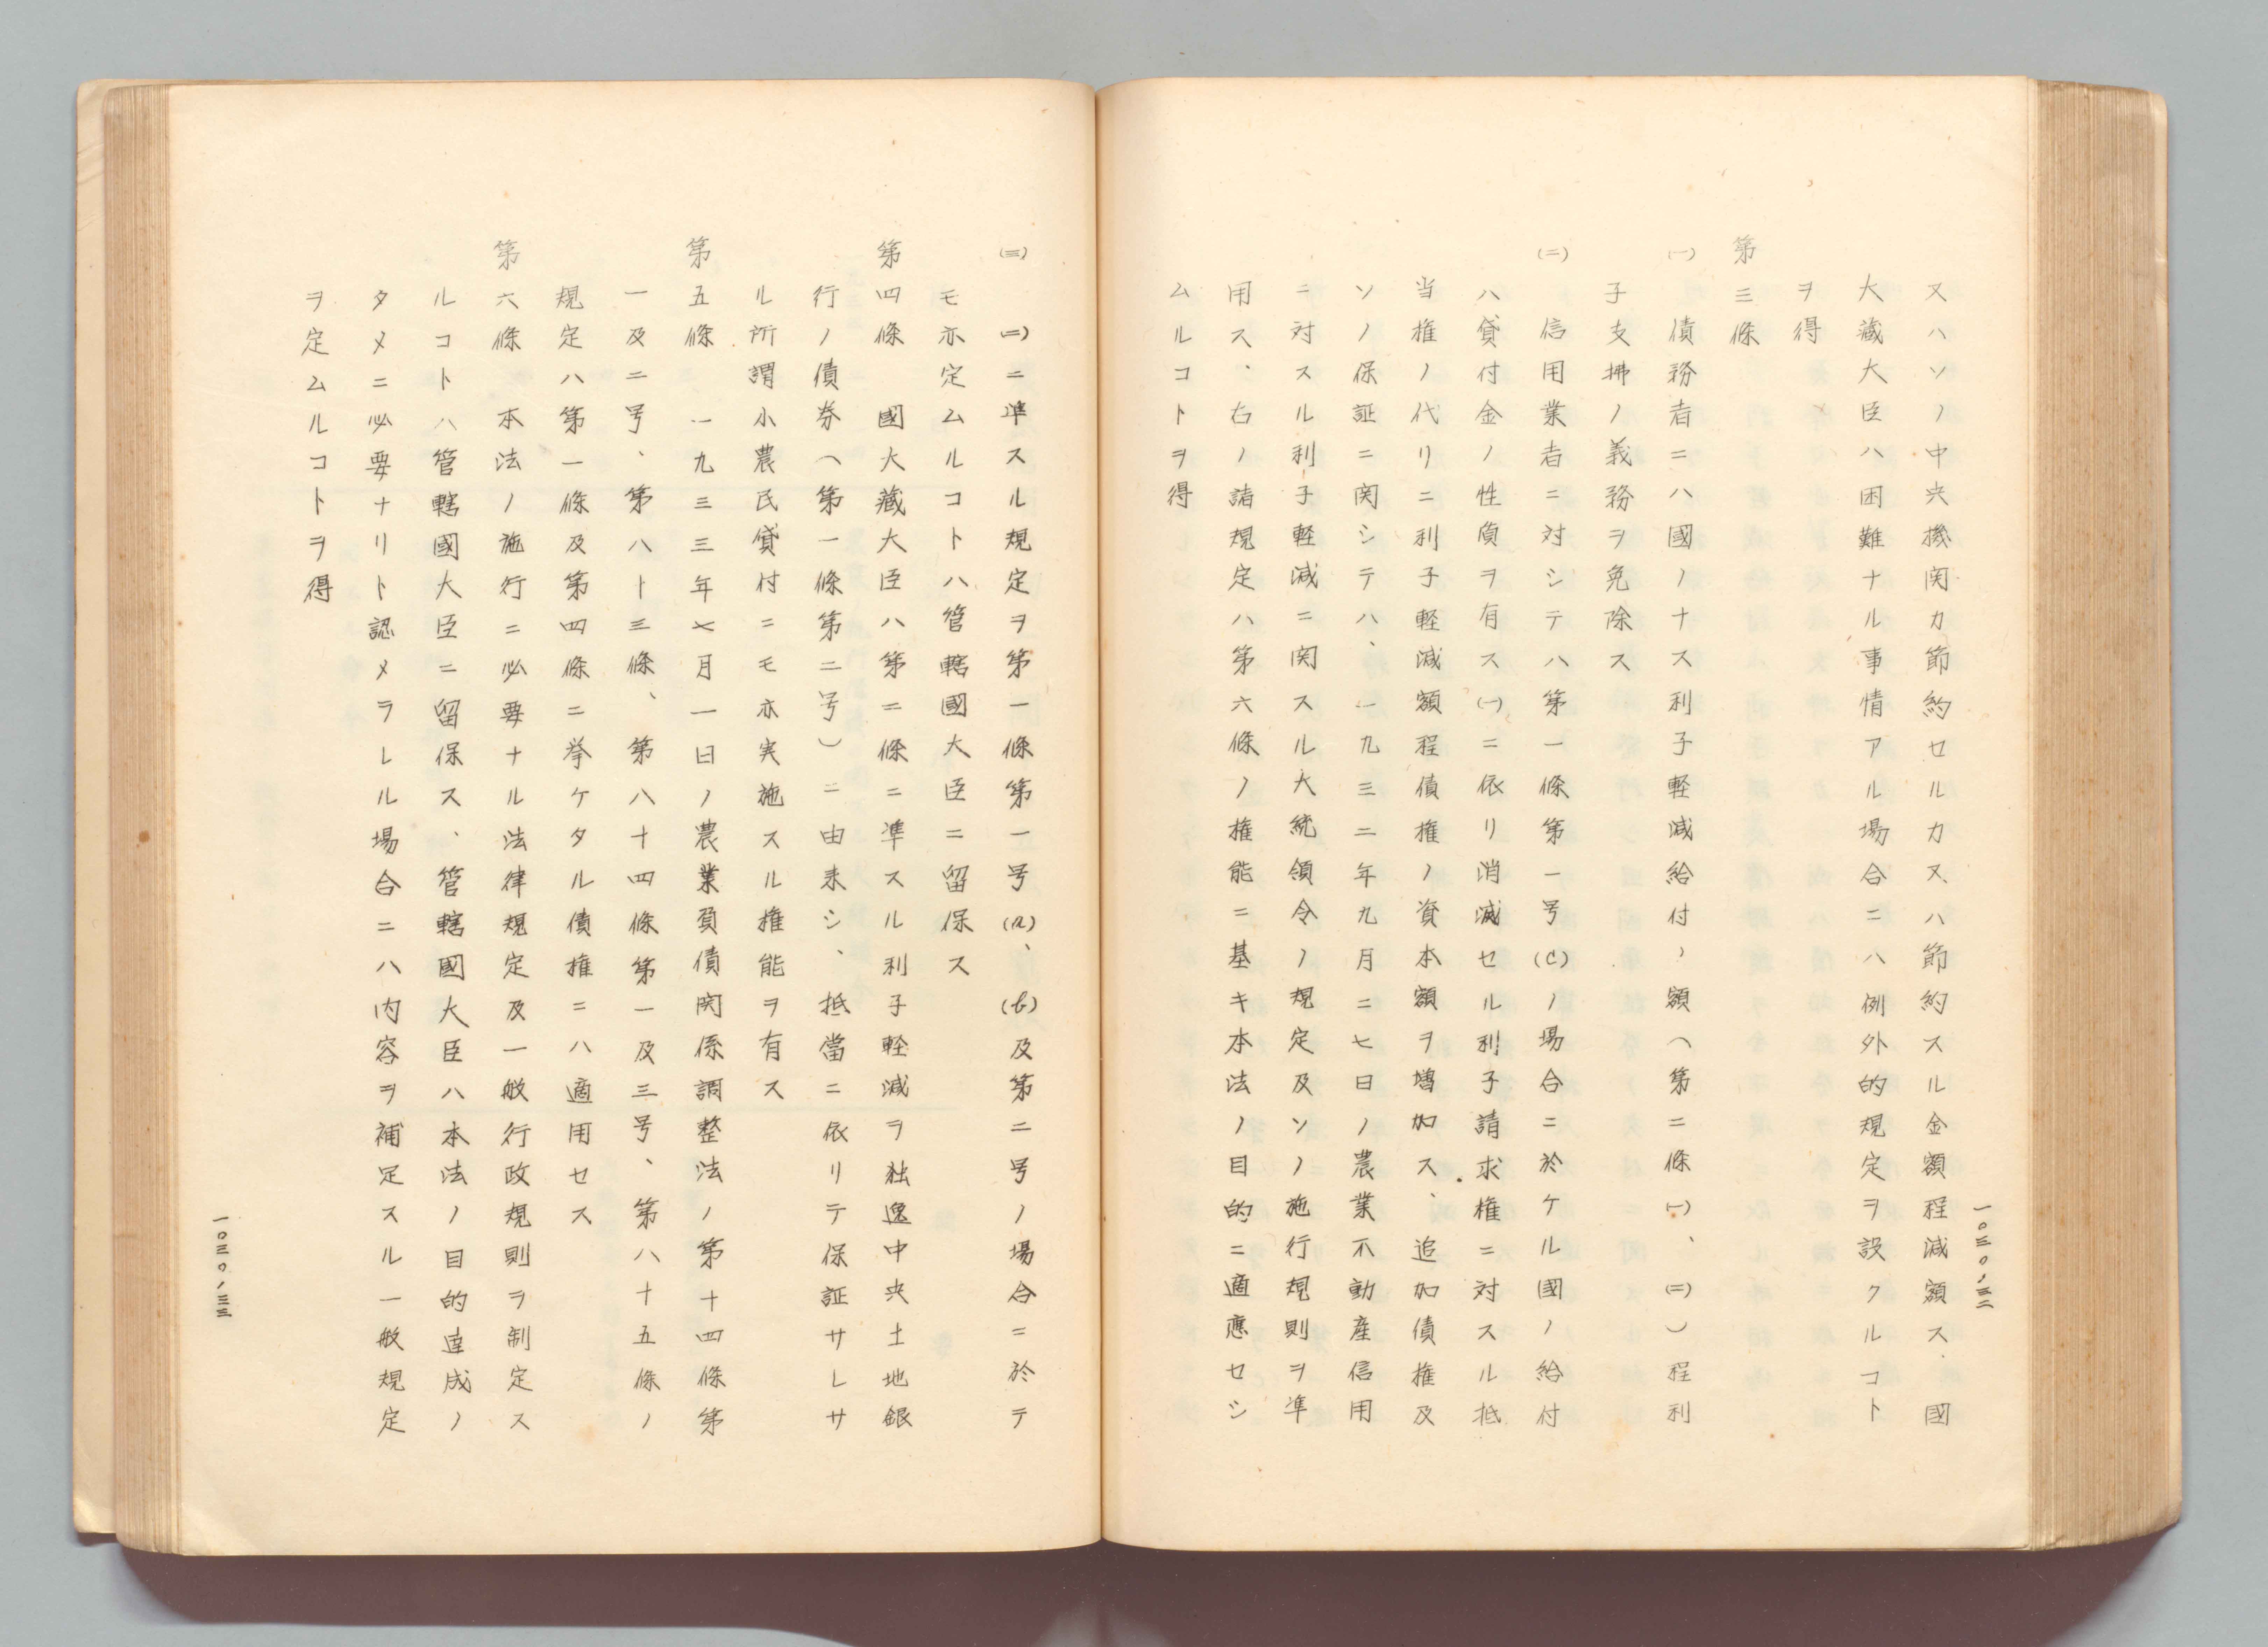 又ハソノ中央機関カ節約セルカ又ハ節約スル金額程減額ス、國
大藏大臣ハ困難ナル事情アル場合ニハ例外的規定ヲ設クルコト
ヲ得
第三條
(一) 債務者ニハ國ノナス利子軽減給付ノ額(第二條(一)、(二))程利
子支拂ノ義務ヲ免除ス
(二) 信用業者ニ対シテハ第一條第一号(c)ノ場合ニ於ケル國ノ給付
ハ貸付金ノ性質ヲ有ス(一)ニ依リ消滅セル利子請求権ニ対スル抵
当権ノ代リニ利子軽減額程債権ノ資本額ヲ増加ス、追加債権及
ソノ保証ニ関シテハ、一九三二年九月二七日ノ農業不動産信用
ニ対スル利子軽減ニ関スル大統領令ノ規定及ソノ施行規則ヲ準
用ス、右ノ諸規定ハ第六條ノ権能ニ基キ本法ノ目的ニ適應セシ
ムルコトヲ得
一〇三〇、三二
(三) (二)ニ準スル規定ヲ第一條第一号(a)、(b)及第二号ノ場合ニ於テ
モ亦定ムルコトハ管轄國大臣ニ留保ス
第四條 國大藏大臣ハ第二條ニ準スル利子軽減ヲ独逸中央土地銀
行ノ債券(第一條第二号)ニ由来シ、抵當ニ依リテ保証サレサ
ル所謂小農民貸付ニモ亦実施スル権能ヲ有ス
第五條 一九三三年七月一日ノ農業負債関係調整法ノ第十四條第
一及二号、第八十三條、第八十四條第一及三号、第八十五條ノ
規定ハ第一條及第四條ニ挙ケタル債権ニハ適用セス
第六條 本法ノ施行ニ必要ナル法律規定及一般行政規則ヲ制定ス
ルコトハ管轄國大臣ニ留保ス、管轄國大臣ハ本法ノ目的達成ノ
タメニ必要ナリト認メラレル場合ニハ内容ヲ補足スル一般規定
ヲ定ムルコトヲ得
一〇三〇、三三